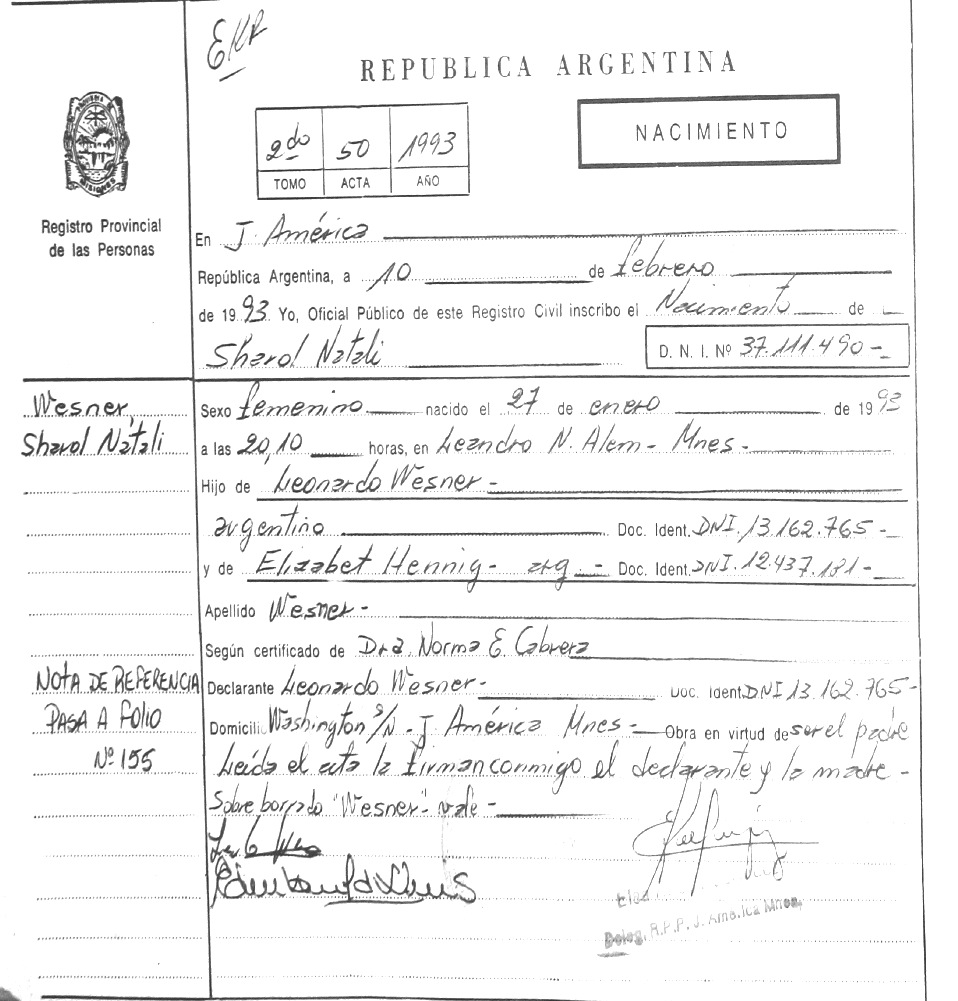 EKR
REPUBLICA ARGENTINA
2do 50 1993
TOMO ACTA AÑO
NACIMIENTO
PROVINCIA DE MISIONES
Registro Provincial
de las Personas
En J. América
República Argentina, a 10 de febrero
de 1993. Yo, Oficial Público de este Registro Civil inscribo el Nacimiento de
Sharol Natali D. N. I. Nº 37.111.490-
Wesner,
Sharol Natali
Sexo femenino nacido el 27 de enero de 1993
a las 20,10 horas, en Leandro N. Alem - Mnes -
Hijo de Leonardo Wesner -
argentino Doc. Ident. DNI. 13.162.765-
y de Elizabet Hennig - arg - Doc. Ident. DNI. 12.437.181-
Apellido Wesner -
Según certificado de Dra. Norma E. Cabrera
NOTA DE REFERENCIA
PASA A FOLIO
Nº 155
Declarante Leonardo Wesner - Doc. Ident. DNI 13.162.765-
Domicili Washington S/N - J. América Mnes - Obra en virtud de ser el padre
Leída el acta la firman conmigo el declarante y la madre -
Sobre borrado "Wesner" vale -
Deleg. R.P.P. J. America Mnes.